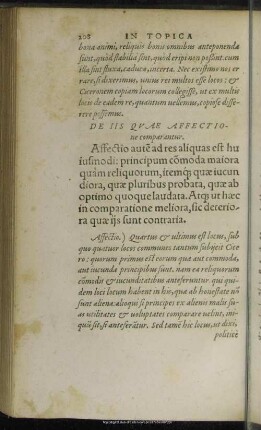 208 IN TOPICA
bona animi, reliquis bonis omnibus anteponenda
sunt, quòd stabilia sint, quòd eripi non possint: cum
illa sint fluxa, caduca, incerta. Nec existimo nos er
rare, si dixerimus, unius rei multos esse locos: &
Ciceronem copiam locorum collegisse, ut ex multis
locis de eadem re, quantum uellemus, copiose disse-
rere possemus.
DE IIS QVAE AFFECTIO-
ne comparantur.
Affectio autē ad res aliquas est hu
iusmodi: principum cōmoda maiora
quàm reliquorum, itemq́; quæ iucun
diora, quæ pluribus probata, quæ ab
optimo quoque laudata. Atq; ut hæc
in comparatione meliora, sic deterio-
ra quæ ijs sunt contraria.
Affectio.) Quartus & ultimus est locus, sub
quo quatuor locos communes tantum subiecit Cice
ro: quorum primus est eorum quæ aut commoda,
aut iucunda principibus sunt. nam ea reliquorum
cōmodis & iucunditatibus anteferuntur. qui qui-
dem loci locum habent in his, quæ ab honestate nō
sunt aliena: alioqui si principes ex alienis malis su-
as utilitates & uoluptates comparare uelint, ini-
quū sit, si anteferātur. Sed tamē hic locus, ut dixi,
politicè